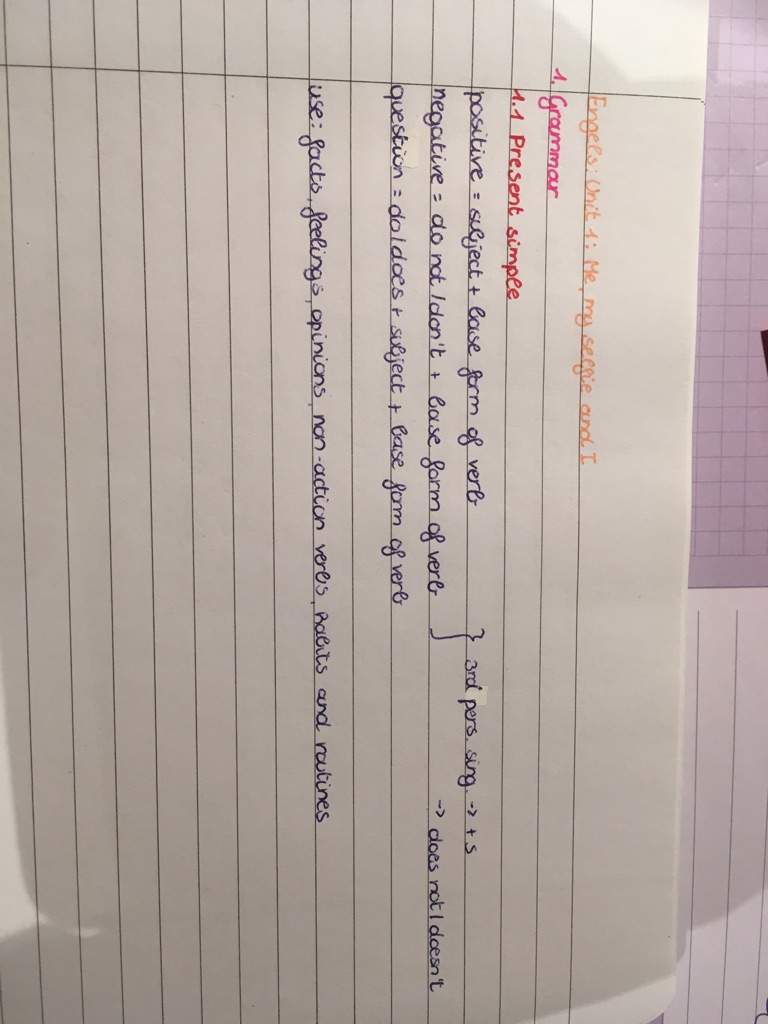 Engels: Unit 1: Me, my selfie and I
1. Grammar
1.1 Present simple
positive = subject + base form of verb } 3rd pers. sing. -> + s
negative = do not / don't + base form of verb -> does not / doesn't
question = do/does + subject + base form of verb
use: facts, feelings, opinions, non-action verbs, habits and routines